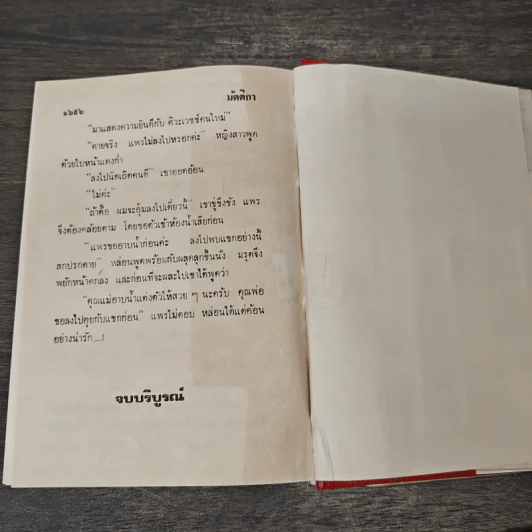 ๑๖๕๖
มัตติกา
"มาแสดงความยินดีกับ คิวะเวชช์คนใหม่"
"ตายจริง แพรไม่ลงไปหรอกค่ะ" หญิงสาวพูด
ด้วยใบหน้าแดงก่ำ
"ลงไปนิดเถิดคนดี" เขาออดอ้อน
"ไม่ค่ะ"
"ถ้าดื้อ ผมจะอุ้มลงไปเดี๋ยวนี้" เขาขู่ขึงขัง แพร
จึงต้องคล้อยตาม โดยขอตัวเข้าห้องน้ำเสียก่อน
"แพรขออาบน้ำก่อนค่ะ ลงไปพบแขกอย่างนี้
สกปรกตาย" หล่อนพูดพร้อมกับผลุดลุกขึ้นนั่ง มรุตจึง
พยักหน้าตกลง และก่อนที่จะผละไปเขาได้พูดว่า
"คุณแม่อาบน้ำแต่งตัวให้สวย ๆ นะครับ คุณพ่อ
ขอลงไปคุยกับแขกก่อน" แพรไม่ตอบ หล่อนได้แต่ค้อน
อย่างน่ารัก...!
จบบริบูรณ์